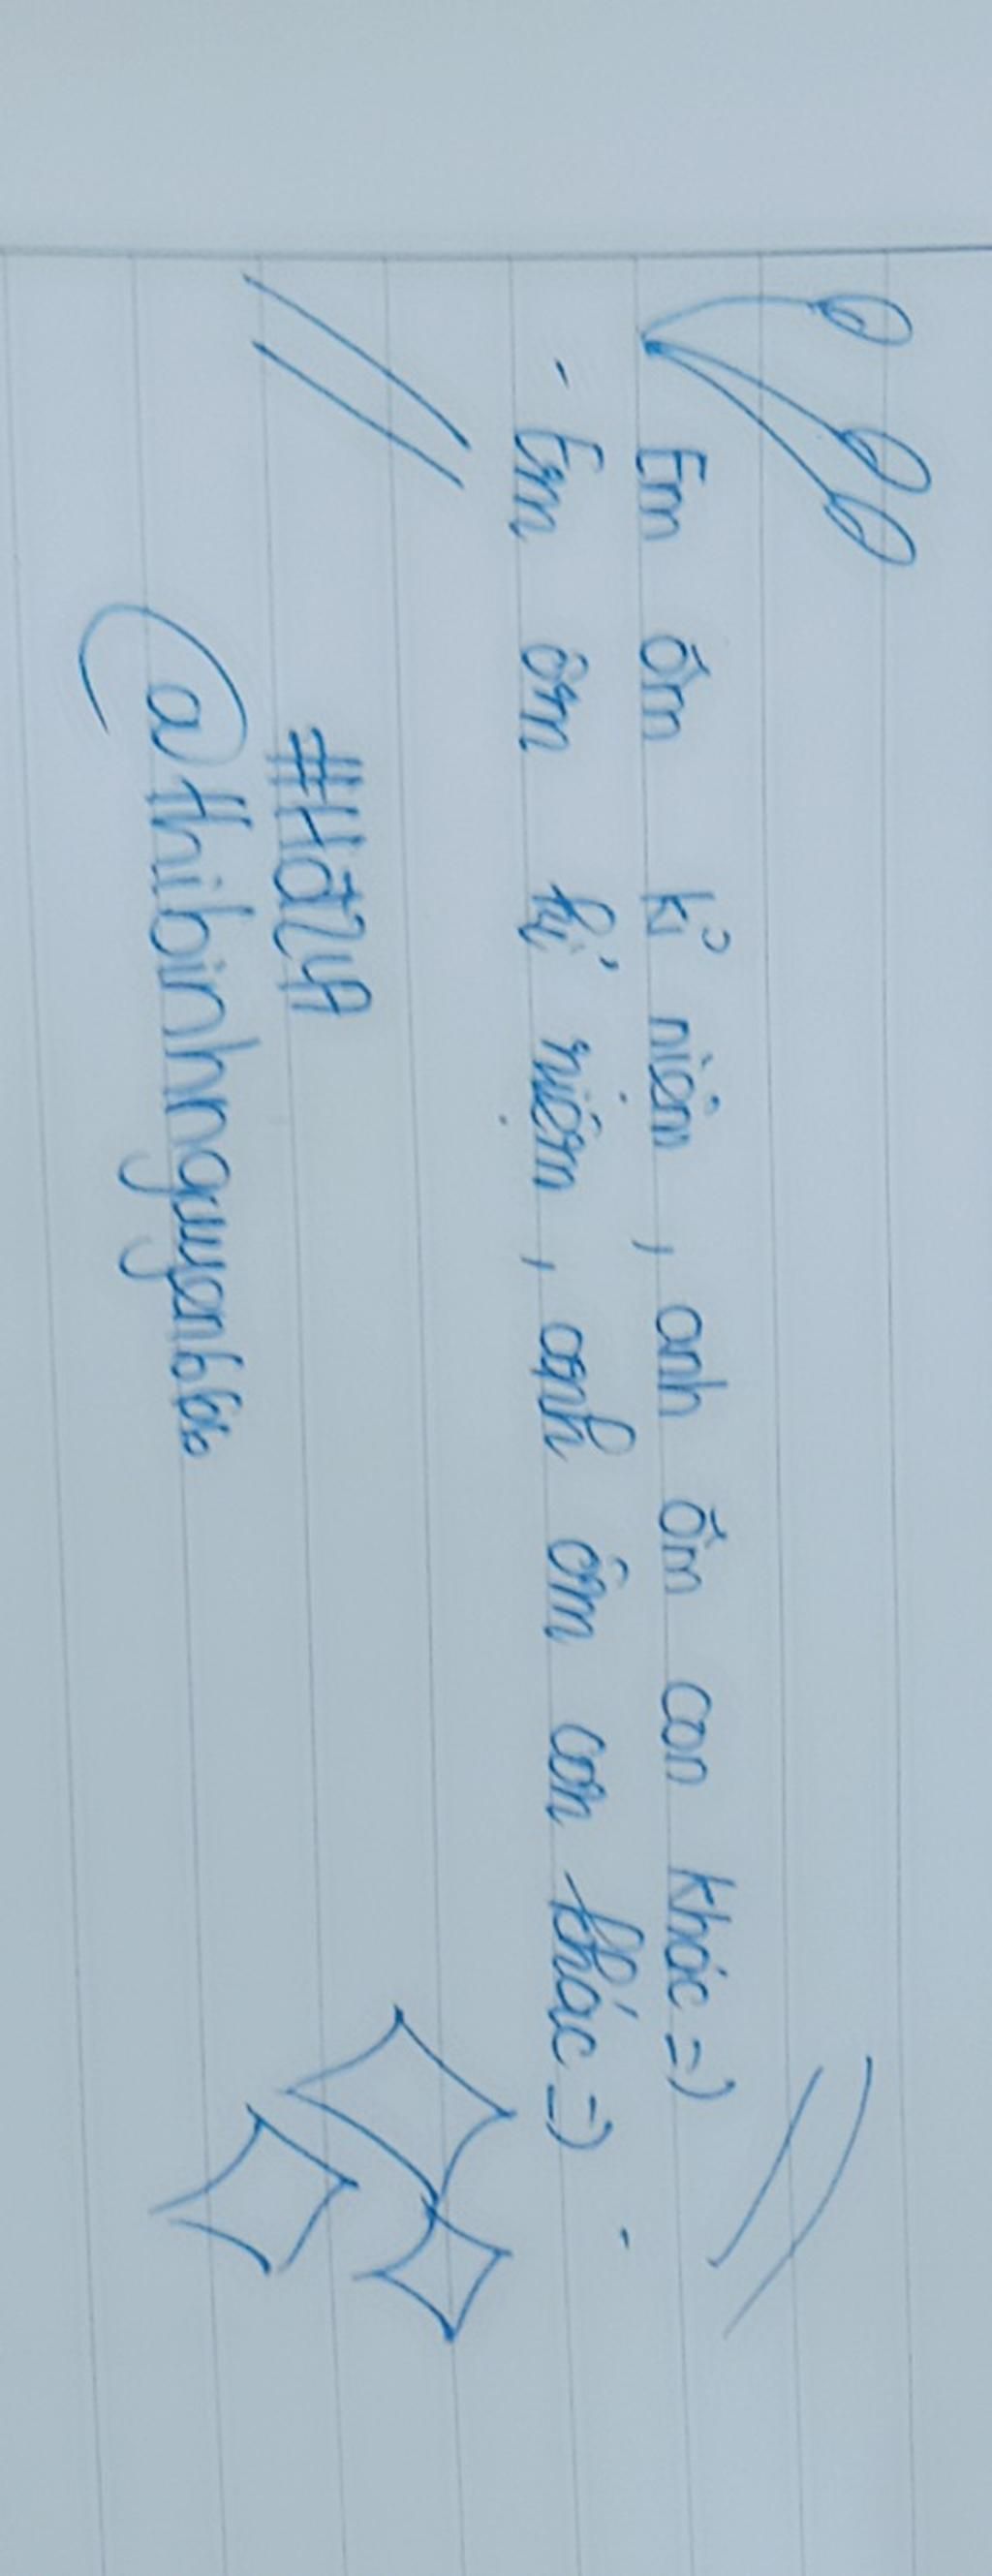 Em ôm kỉ niệm, anh ôm con khác =)
- Em ôm kỉ niệm, anh ôm con khác =) -
@thibinhnguyen666